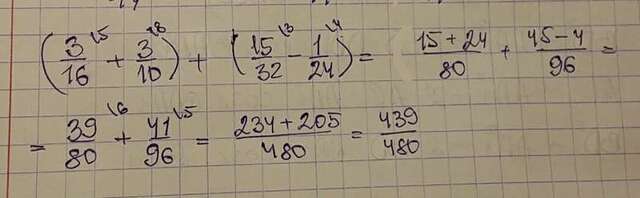 (3/16 \5 + 3/10 \8) + (15/32 \3 − 1/24 \4) = (15+24)/80 + (45−4)/96 =
= 39/80 \6 + 41/96 \5 = (234+205)/480 = 439/480